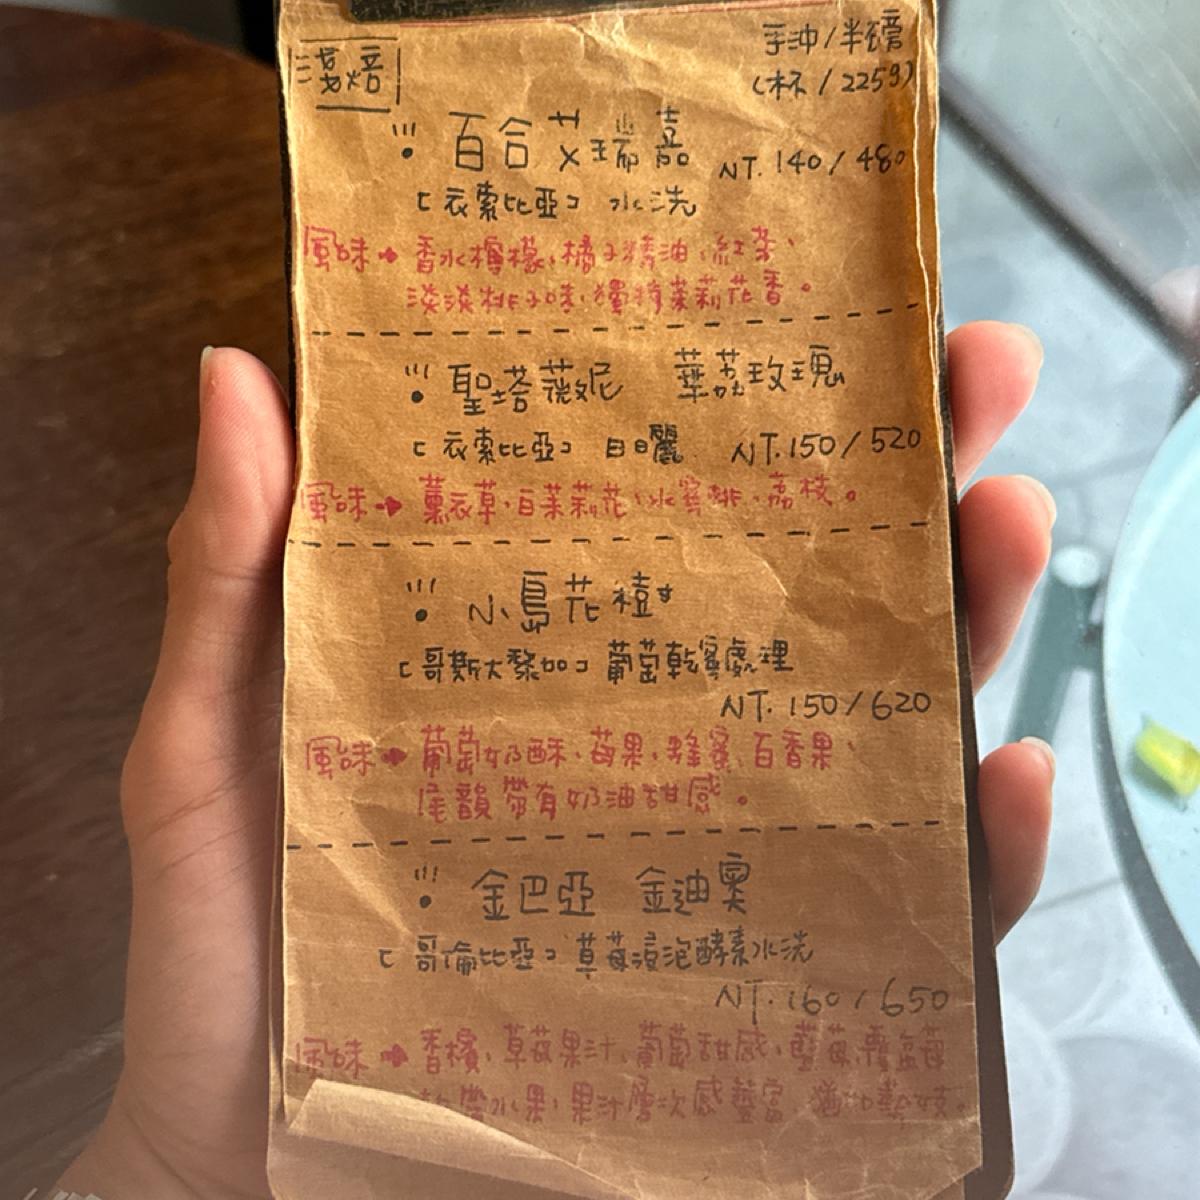 淺焙
手沖/半磅
(杯/225g)
百合艾瑞嘉 NT.140/480
[衣索比亞] 水洗
風味→香水檸檬、橘子精油、紅茶、
淡淡桃子味、獨特茉莉花香。
聖塔薇妮 華荔玫瑰
[衣索比亞] 日曬 NT.150/520
風味→薰衣草、白茉莉花、水蜜桃、荔枝。
小島花樹
[哥斯大黎加] 葡萄乾蜜處理
NT.150/620
風味→葡萄奶酥、莓果、蜂蜜、百香果、
尾韻帶有奶油甜感。
金巴亞 金迪奧
[哥倫比亞] 草莓浸泡酵素水洗
NT.160/650
風味→香檳、草莓果汁、葡萄甜感、藍莓、覆盆莓
水果、果汁層次感豐富